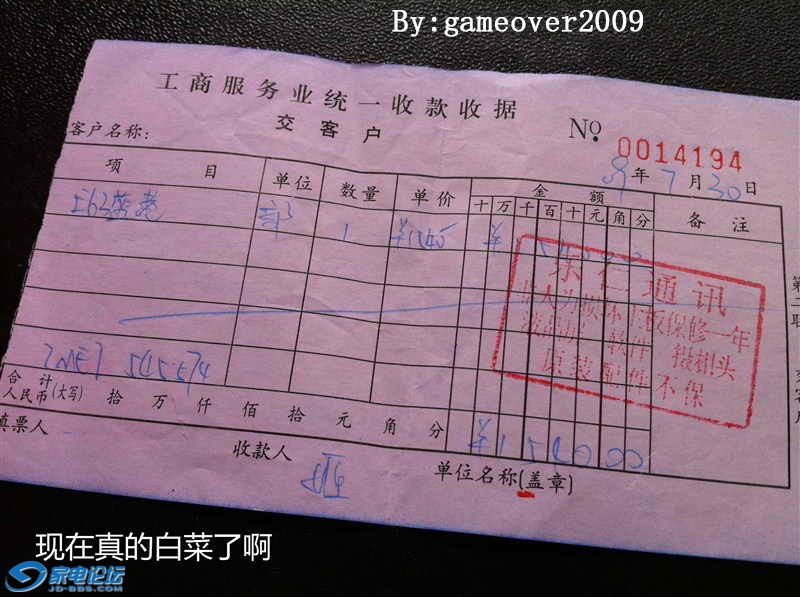 By:gameover2009
工商服务业统一收款收据
交客户
No. 0014194
客户名称:
09年7月30日
项目 单位 数量 单价 金额 备注
十万千百十元角分
E63 部 1 ¥1540 ¥
通讯
非人为损坏主板保修一年
软件 摄相头
原装配件不保
IMEI 545574
合计人民币(大写) 拾 万 仟 佰 拾 元 角 分 ¥154000
填票人 收款人 单位名称(盖章)
第二联
交客户
现在真的白菜了啊
家电论坛
JD-BBS.COM